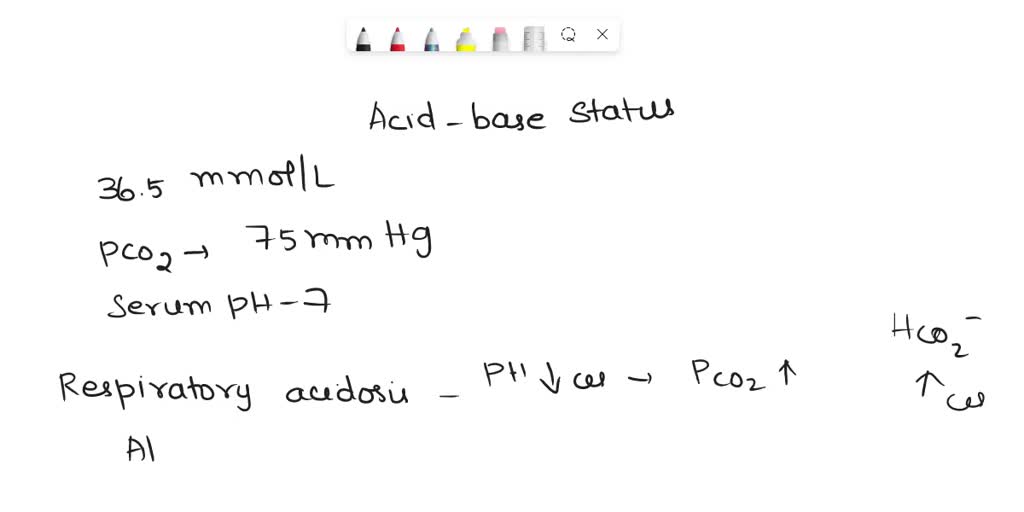 Acid-base status
36.5 mmol/L
PCO2 → 75 mm Hg
Serum pH-7
HCO2⁻
Respiratory acidosis - PH ↓ → PCO2 ↑ ↑
Al